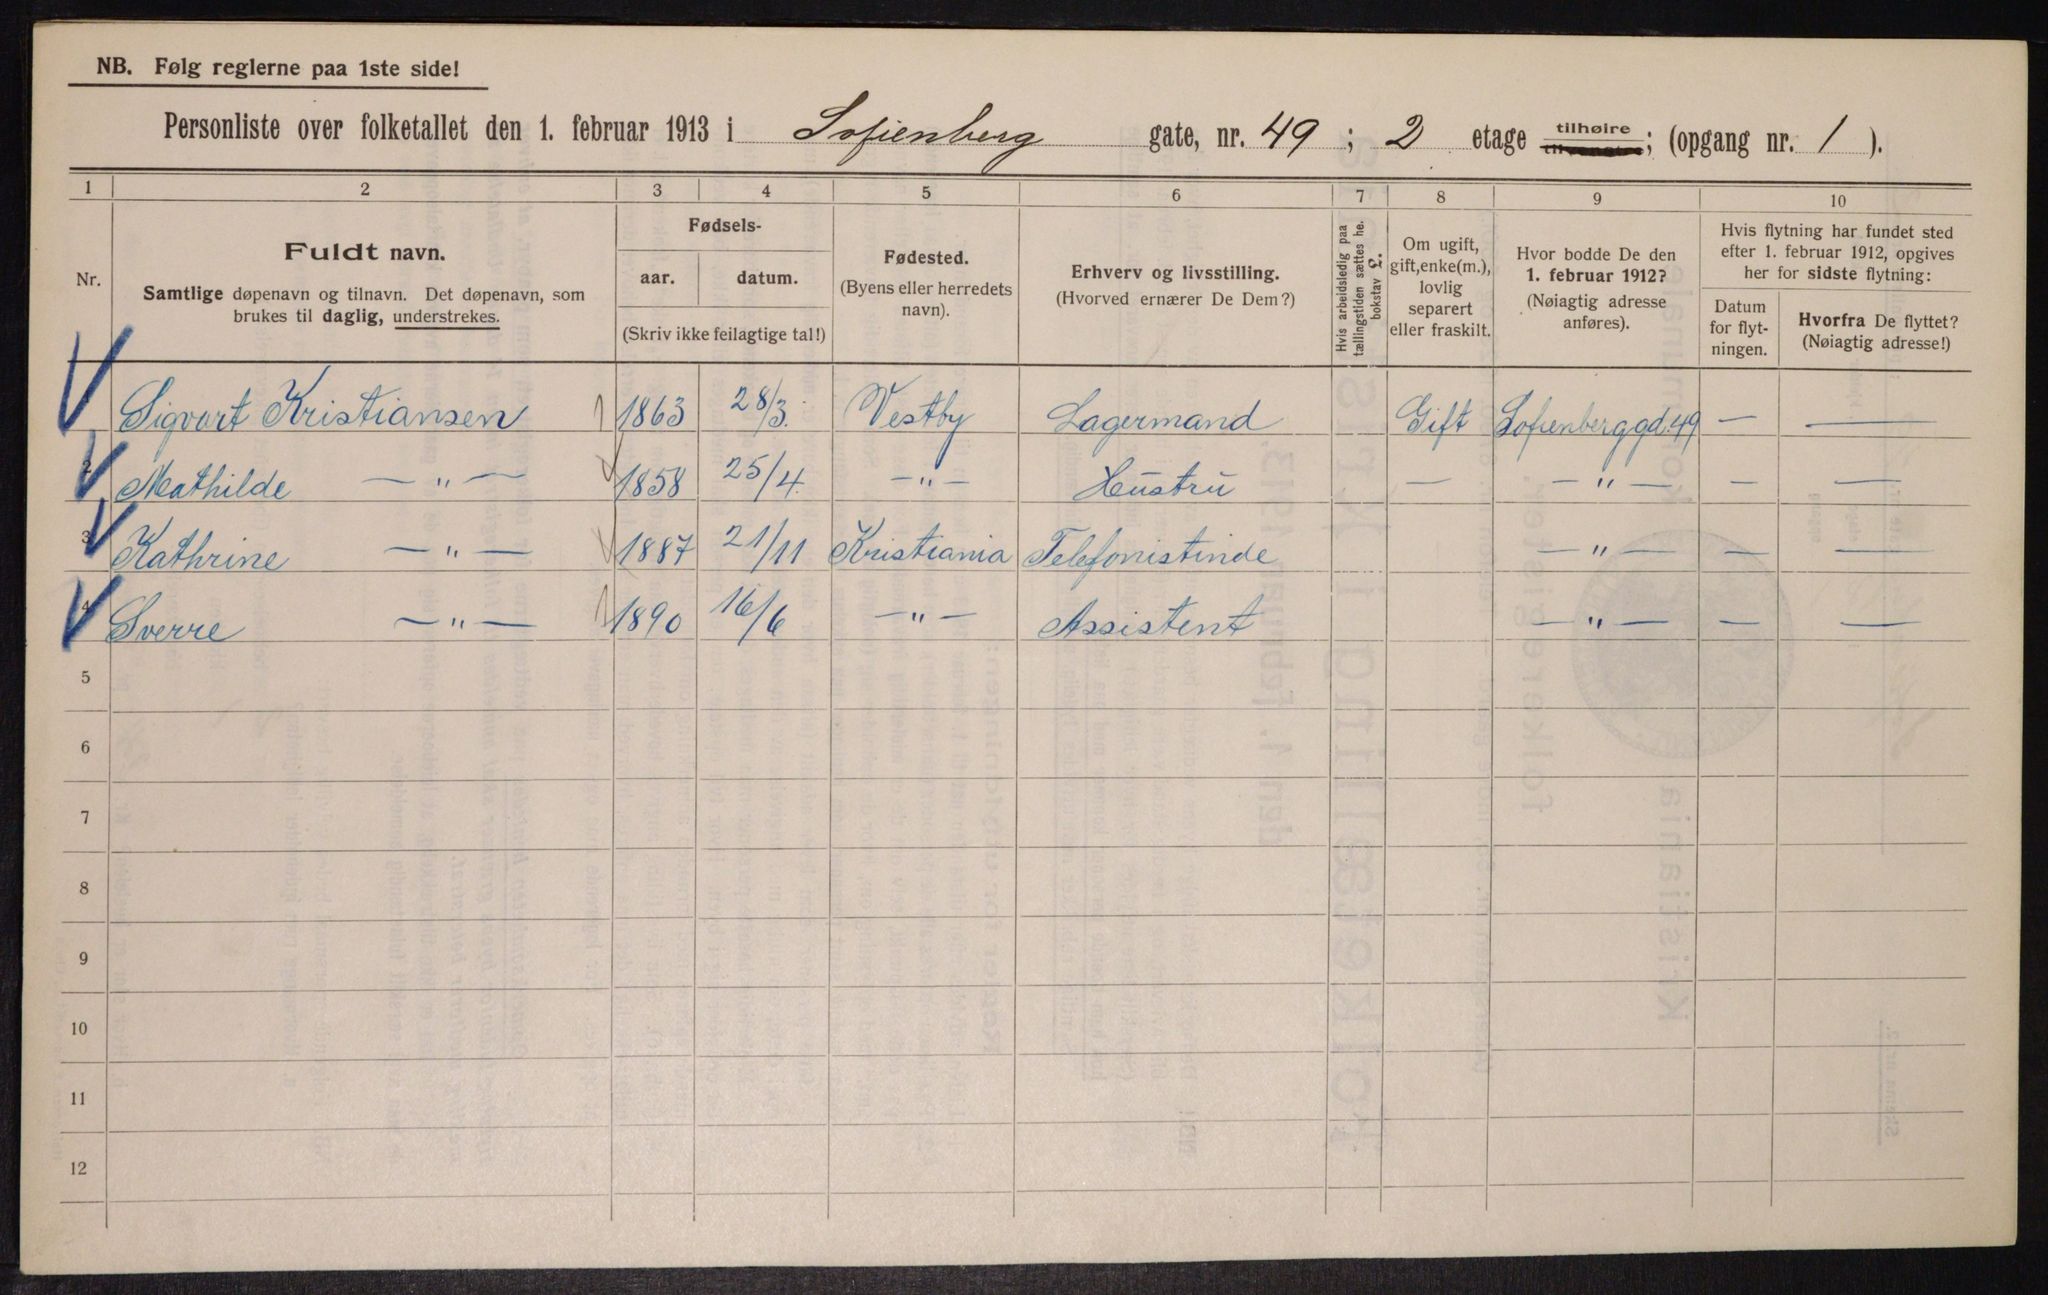 NB. Følg reglerne paa 1ste side!
Personliste over folketallet den 1. februar 1913 i Sofienberg gate, nr. 49 ; 2 etage tilhøire tilvenstre; (opgang nr. 1 ).
1 2 3 4 5 6 7 8 9 10
Nr.
Fuldt navn.
Samtlige døpenavn og tilnavn. Det døpenavn, som
brukes til daglig, understrekes.
Fødsels-
aar. datum.
(Skriv ikke feilagtige tal!)
Fødested.
(Byens eller herredets
navn).
Erhverv og livsstilling.
(Hvorved ernærer De Dem?)
Hvis arbeidsledig paa
tællingstiden sættes he.
bokstav L.
Om ugift,
gift, enke(m.),
lovlig
separert
eller fraskilt.
Hvor bodde De den
1. februar 1912?
(Nøiagtig adresse
anføres).
Hvis flytning har fundet sted
efter 1. februar 1912, opgives
her for sidste flytning:
Datum
for flyt-
ningen.
Hvorfra De flyttet?
(Nøiagtig adresse!)
Sigvart Kristiansen 1863 28/3. Vestby Lagermand Gift Sofienberggd. 49 — —
2 Mathilde — " — 1858 25/4. — " — Hustru — — " — — —
3 Kathrine — " — 1887 21/11 Kristiania Telefonistinde — " — — —
4 Sverre — " — 1890 16/6 — " — Assistent — " — — —
5
6
7
8
9
10
11
12